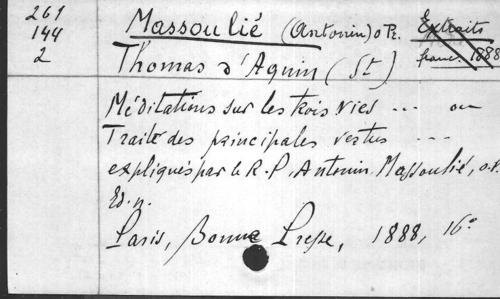 261 Massoulié (Antonin) o Pr. Extraits
144 franc. 1888
2 Thomas d'Aquin (St)
Méditations sur les trois vies ... ou
Traité des principales vertus ...
expliqués par le R.P. Antonin Massoulié, o.p.
Ed. n.
Paris, Bonne Presse, 1888, 16°